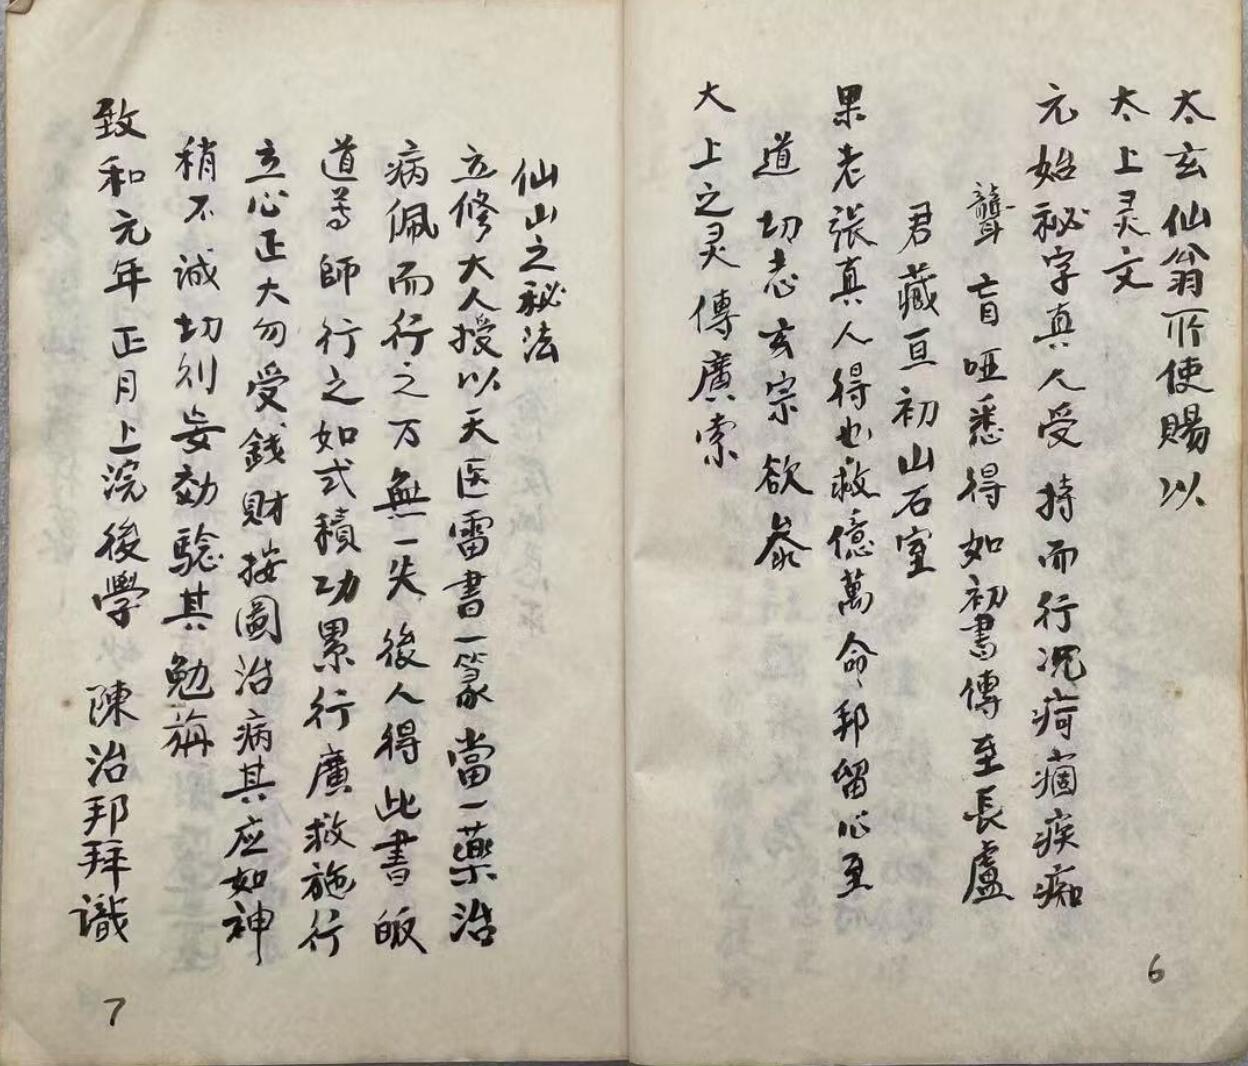 太玄仙翁所使賜以
太上灵文
元始秘字真人受持而行况疴痼疾痴
聾盲哑悉得如初書傳至長盧
君藏亘初山石室
果老張真人得也救億萬命邦留心至
道切志玄宗欲叅
大上之灵傳廣索
6
仙山之秘法
立修大人授以天医雷書一篆當一藥治
病佩而行之万無一失後人得此書皈
道尊師行之如式積功累行廣救施行
立心正大勿受錢財按圖治病其应如神
稍不诚切则妄効驗其勉旃
致和元年正月上浣後學 陳治邦拜識
7